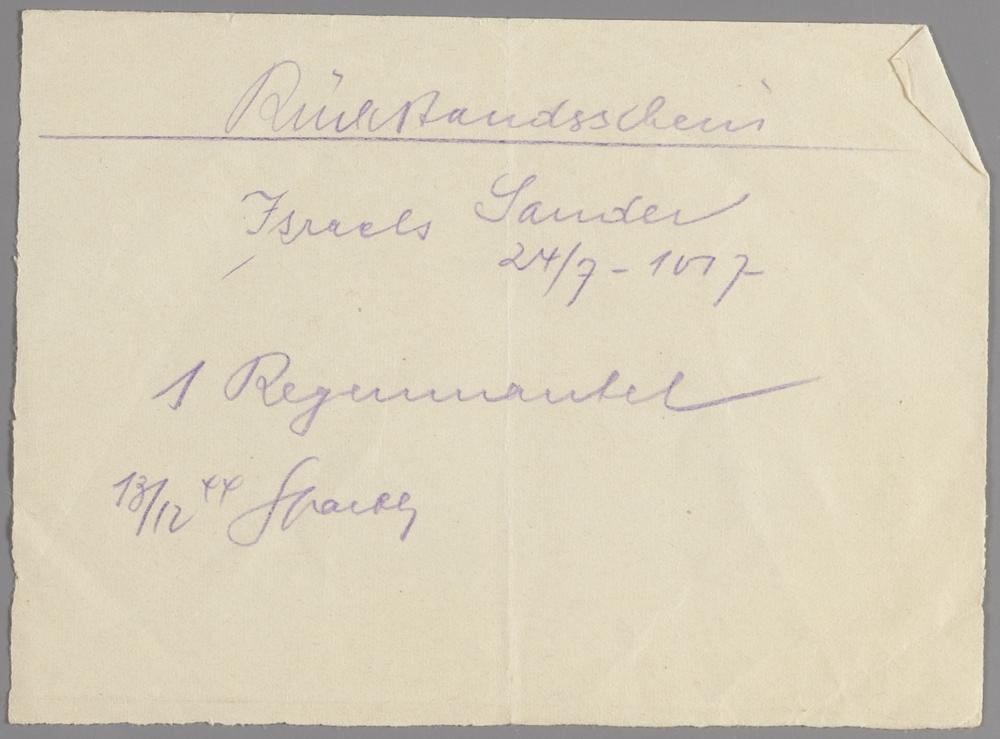 Rückstandsschein
Israels Sander
24/7 - 1017
1 Regenmantel
13/12 44